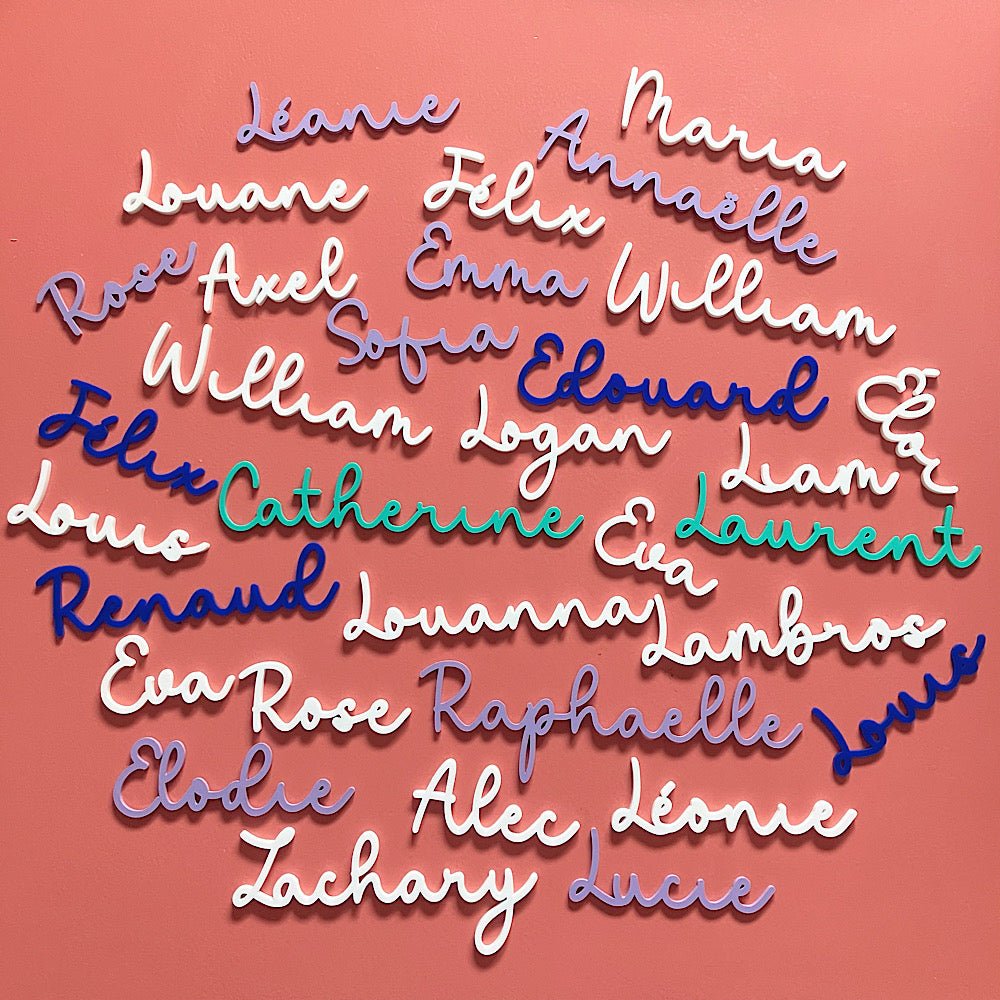 Léanie
Maria
Annaëlle
Louane
Félix
Rose
Axel
Emma
William
Sofia
William
Edouard
Félix
Logan
Liam
Louis
Catherine
Eva
Laurent
Renaud
Louanna
Lambros
Eva
Rose
Raphaelle
Louis
Elodie
Alec
Léonie
Zachary
Lucie